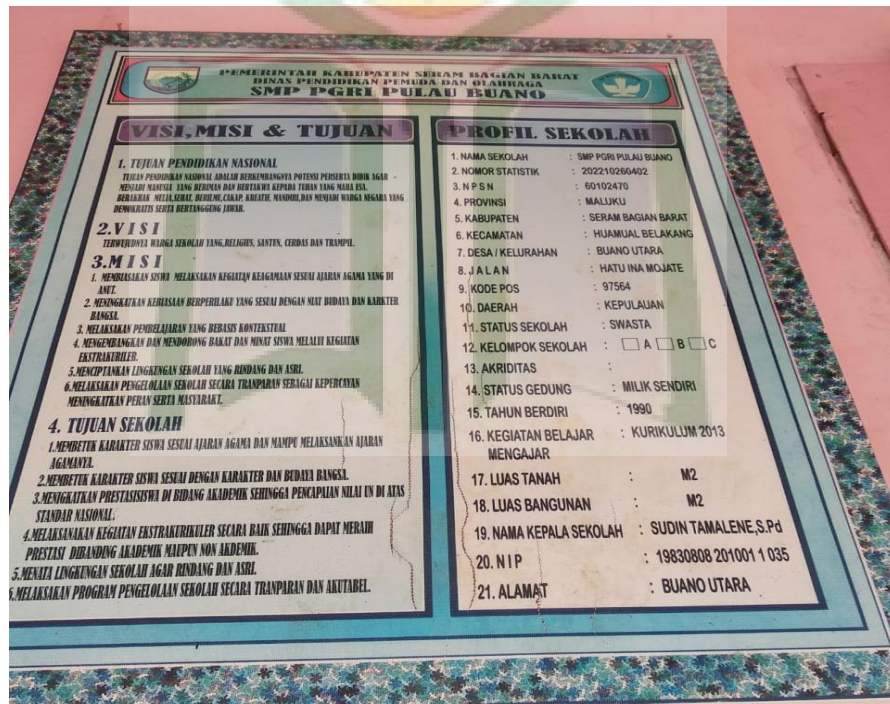 PEMERINTAH KABUPATEN SERAM BAGIAN BARAT
DINAS PENDIDIKAN PEMUDA DAN OLAHRAGA
SMP PGRI PULAU BUANO
VISI,MISI & TUJUAN
1. TUJUAN PENDIDIKAN NASIONAL
TUJUAN PENDIDIKAN NASIONAL ADALAH BERKEMBANGNYA POTENSI PERSERTA DIDIK AGAR
MENJADI MANUSIA YANG BERIMAN DAN BERTAKWA KEPADA TUHAN YANG MAHA ESA.
BERAKHAK MULIA,SEHAT, BERILMU,CAKAP, KREATIF, MANDIRI,DAN MENJADI WARGA NEGARA YANG
DEMOKRATIS SERTA BERTANGGUNG JAWAB.
2.VISI
TERWUJUDNYA WARGA SEKOLAH YANG,RELIGIUS, SANTUN, CERDAS DAN TRAMPIL.
3.MISI
1. MEMBIASAKAN SISWA MELAKSAKAN KEGIATAN KEAGAMAAN SESUAI AJARAN AGAMA YANG DI
ANUT.
2. MENINGKATKAN KEBIASAAN BERPERILAKU YANG SESUAI DENGAN NIAT BUDAYA DAN KARKTER
BANGSA.
3. MELAKSAKAN PEMBELAJARAN YANG BEBASIS KONTEKSTUAL
4. MENGEMBANGKAN DAN MENDORONG BAKAT DAN MINAT SISWA MELALUI KEGIATAN
EKSTRAKURILER.
5.MENCIPTANKAN LINGKUNGAN SEKOLAH YANG RINDANG DAN ASRI.
6.MELAKSAKAN PENGELOLAAN SEKOLAH SECARA TRANPARAN SEBAGAI KEPERCAYAN
MENINGKATKAN PERAN SERTA MASYARAKT.
4. TUJUAN SEKOLAH
1.MEMBETUK KARAKTER SISWA SESUAI AJARAN AGAMA DAN MAMPU MELAKSANKAN AJARAN
AGAMANYA.
2.MEMBETUK KARAKTER SISWA SESUAI DENGAN KARAKTER DAN BUDAYA BANGSA.
3.MENIGKATKAN PRESTASISISWA DI BIDANG AKADEMIK SEHINGGA PENCAPAIAN NILAI UN DI ATAS
STANDAR NASIONAL.
4.MELAKSANAKAN KEGIATAN EKSTRAKURIKULER SECARA BAIK SEHINGGA DAPAT MERAIH
PRESTASI DIBANDING AKADEMIK MAUPUN NON AKDEMIK.
5.MENATA LINGKUNGAN SEKOLAH AGAR RINDANG DAN ASRI.
6.MELAKSAKAN PROGRAM PENGELOLAAN SEKOLAH SECARA TRANPARAN DAN AKUTABEL.
PROFIL SEKOLAH
1. NAMA SEKOLAH : SMP PGRI PULAU BUANO
2. NOMOR STATISTIK : 202210260402
3. N P S N : 60102470
4. PROVINSI : MALUKU
5. KABUPATEN : SERAM BAGIAN BARAT
6. KECAMATAN : HUAMUAL BELAKANG
7. DESA / KELURAHAN : BUANO UTARA
8. J A L A N : HATU INA MOJATE
9. KODE POS : 97564
10. DAERAH : KEPULAUAN
11. STATUS SEKOLAH : SWASTA
12. KELOMPOK SEKOLAH : A B C
13. AKRIDITAS :
14. STATUS GEDUNG : MILIK SENDIRI
15. TAHUN BERDIRI : 1990
16. KEGIATAN BELAJAR : KURIKULUM 2013
MENGAJAR
17. LUAS TANAH : M2
18. LUAS BANGUNAN : M2
19. NAMA KEPALA SEKOLAH : SUDIN TAMALENE,S.Pd
20. N I P : 19830808 201001 1 035
21. ALAMAT : BUANO UTARA